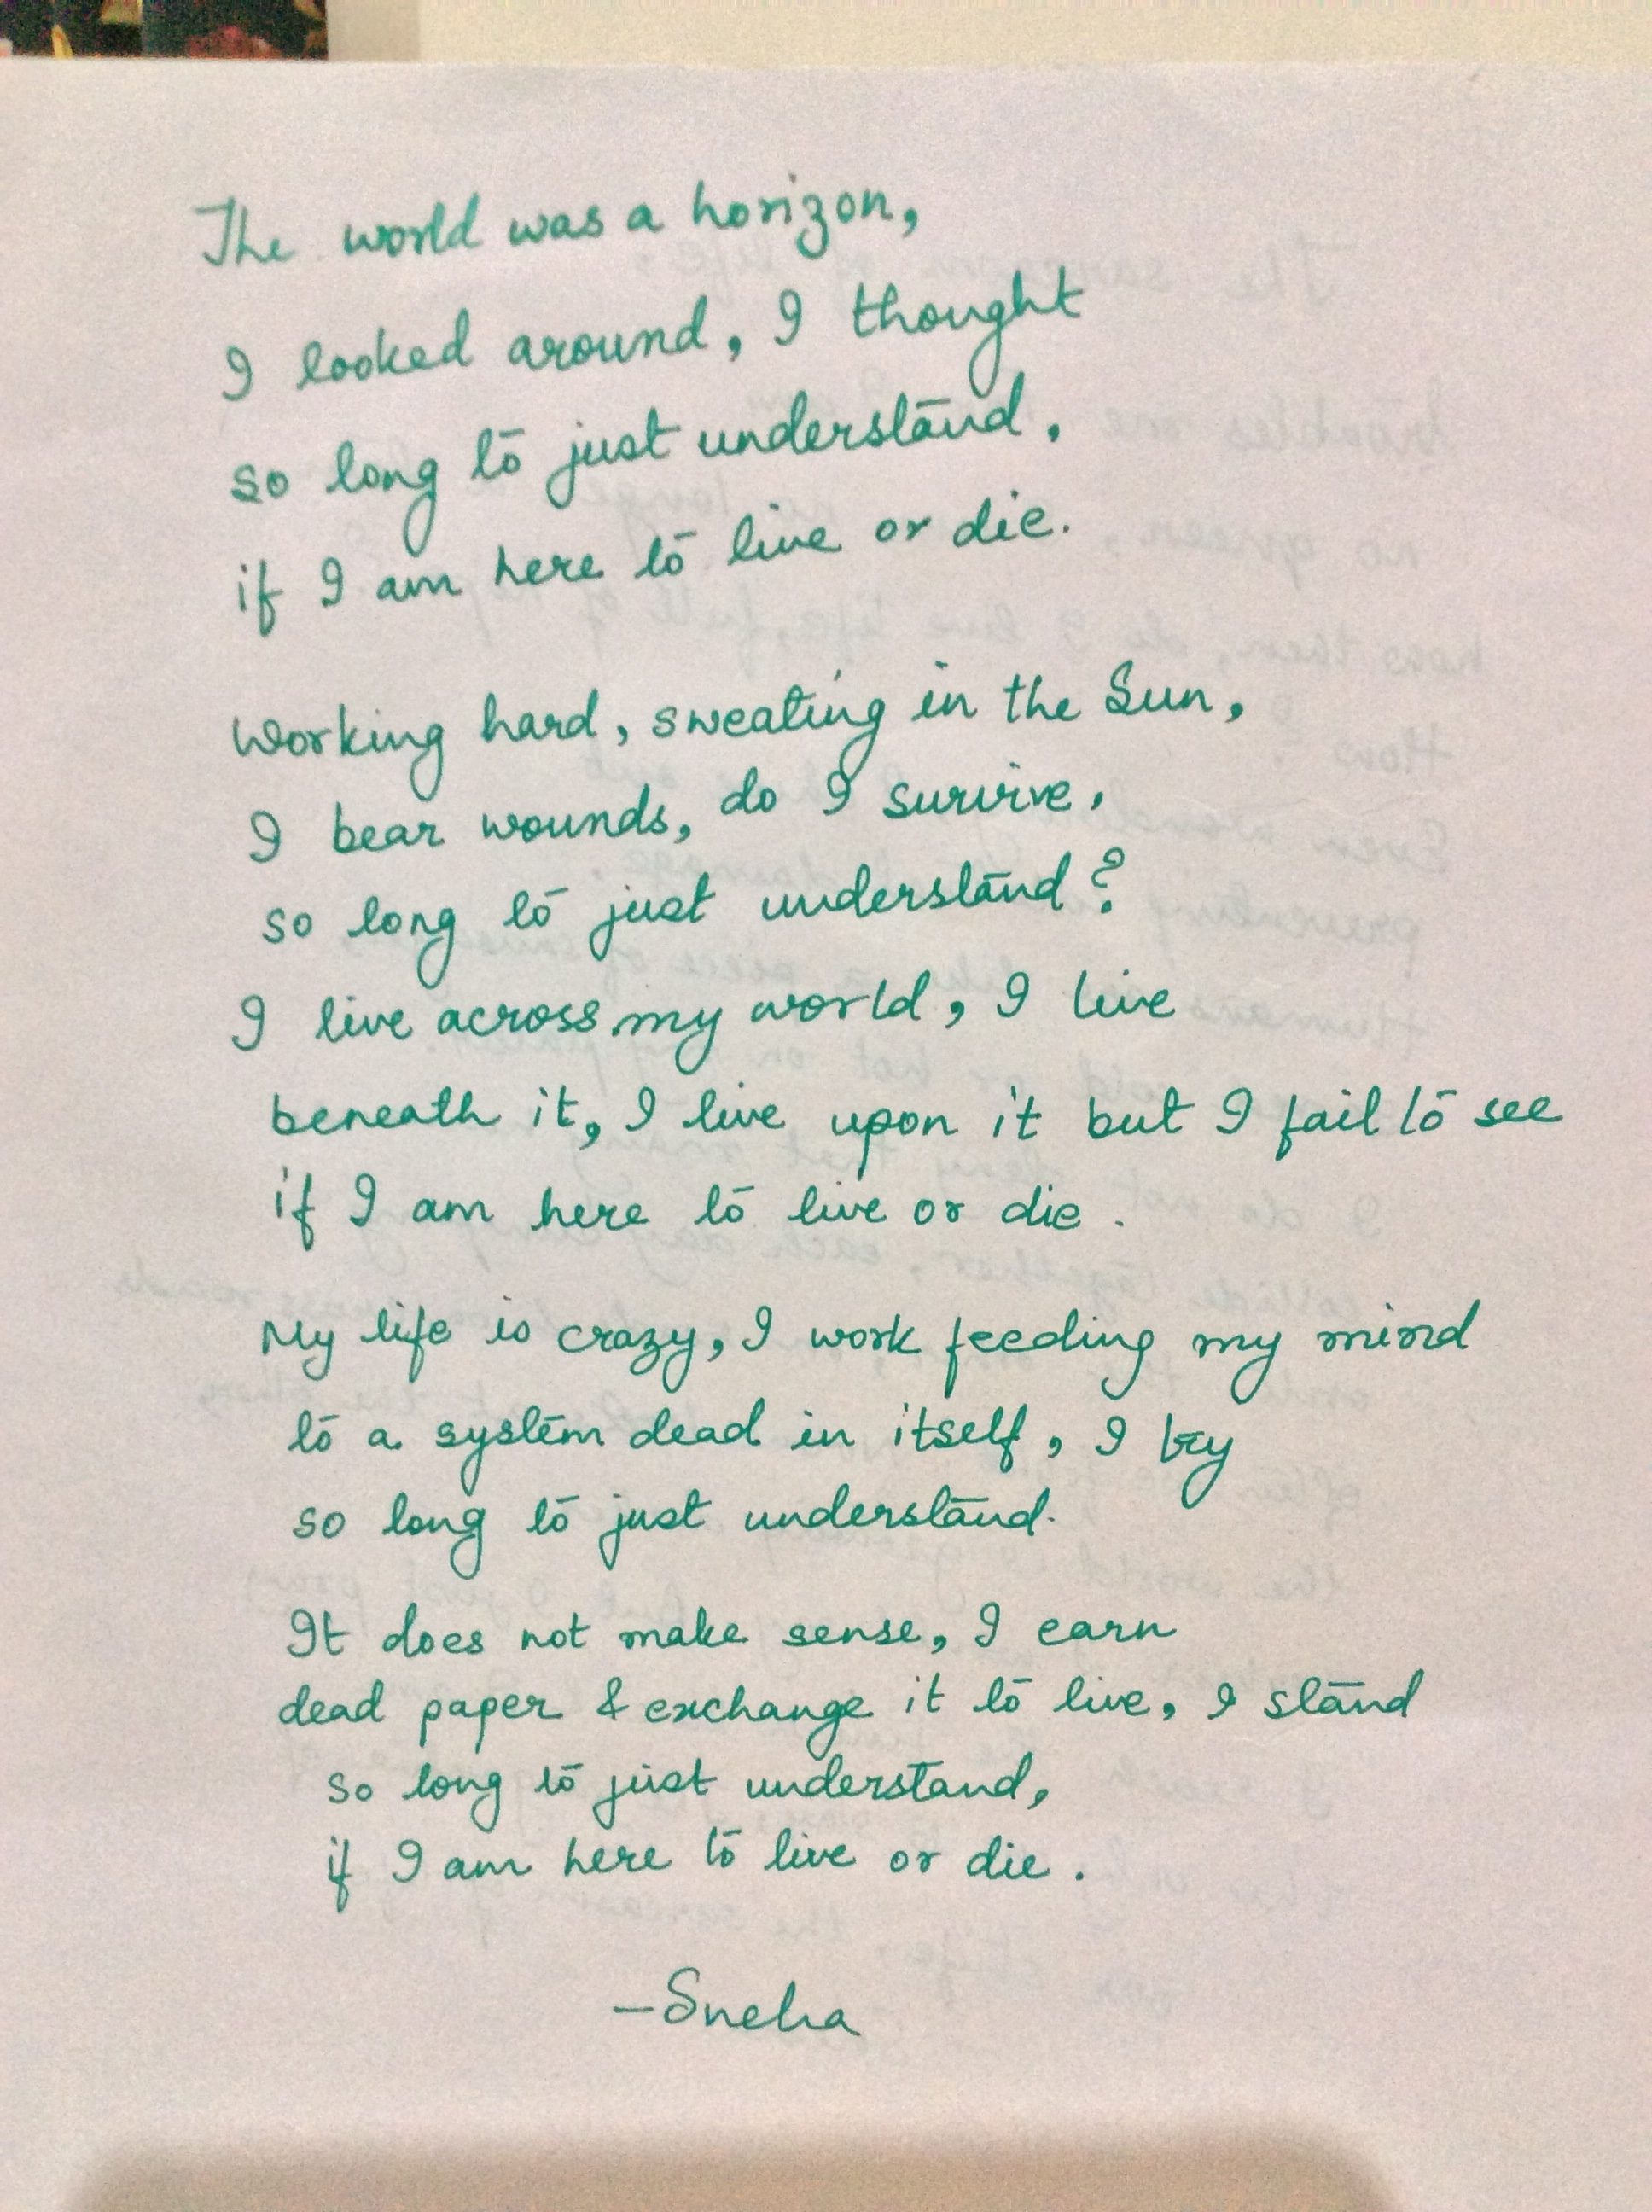 The world was a horizon,
I looked around, I thought
so long to just understand,
if I am here to live or die.
Working hard, sweating in the Sun,
I bear wounds, do I survive,
so long to just understand?
I live across my world, I live
beneath it, I live upon it but I fail to see
if I am here to live or die.
My life is crazy, I work feeding my mind
to a system dead in itself, I try
so long to just understand.
It does not make sense, I earn
dead paper & exchange it to live, I stand
so long to just understand,
if I am here to live or die.
—Sneha